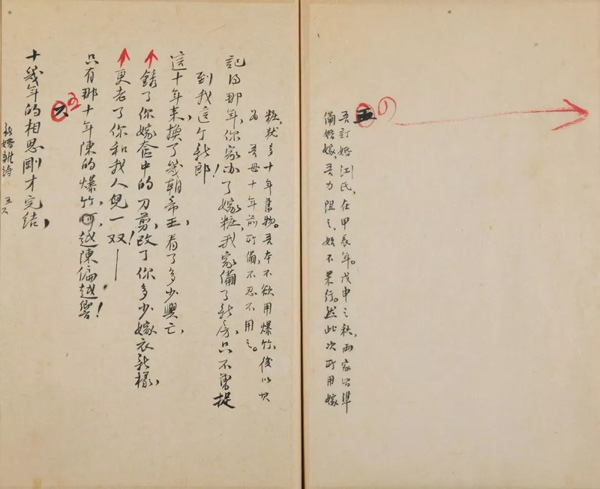 五 (1)
吾訂婚江氏,在甲辰年。戊申之秋,兩家皆準
備婚嫁,吾力阻之,始不果行。然此次所用嫁
粧,犹多十年舊物。吾本不欲用爆竹,後以其
為吾母十年前所備,不忍不用之。
記得那年,你家办了嫁粧,我家備了新房,只不曾捉
到我這个新郎!
這十年来,換了幾朝帝王,看了多少興亡,
銹了你嫁奩中的刀剪,改了你多少嫁衣新樣,
更老了你和我人兒一双!——
只有那十年陳的爆竹,越陳偏越響!
六 (2)
十幾年的相思剛才完結,
新婚雜詩 五六